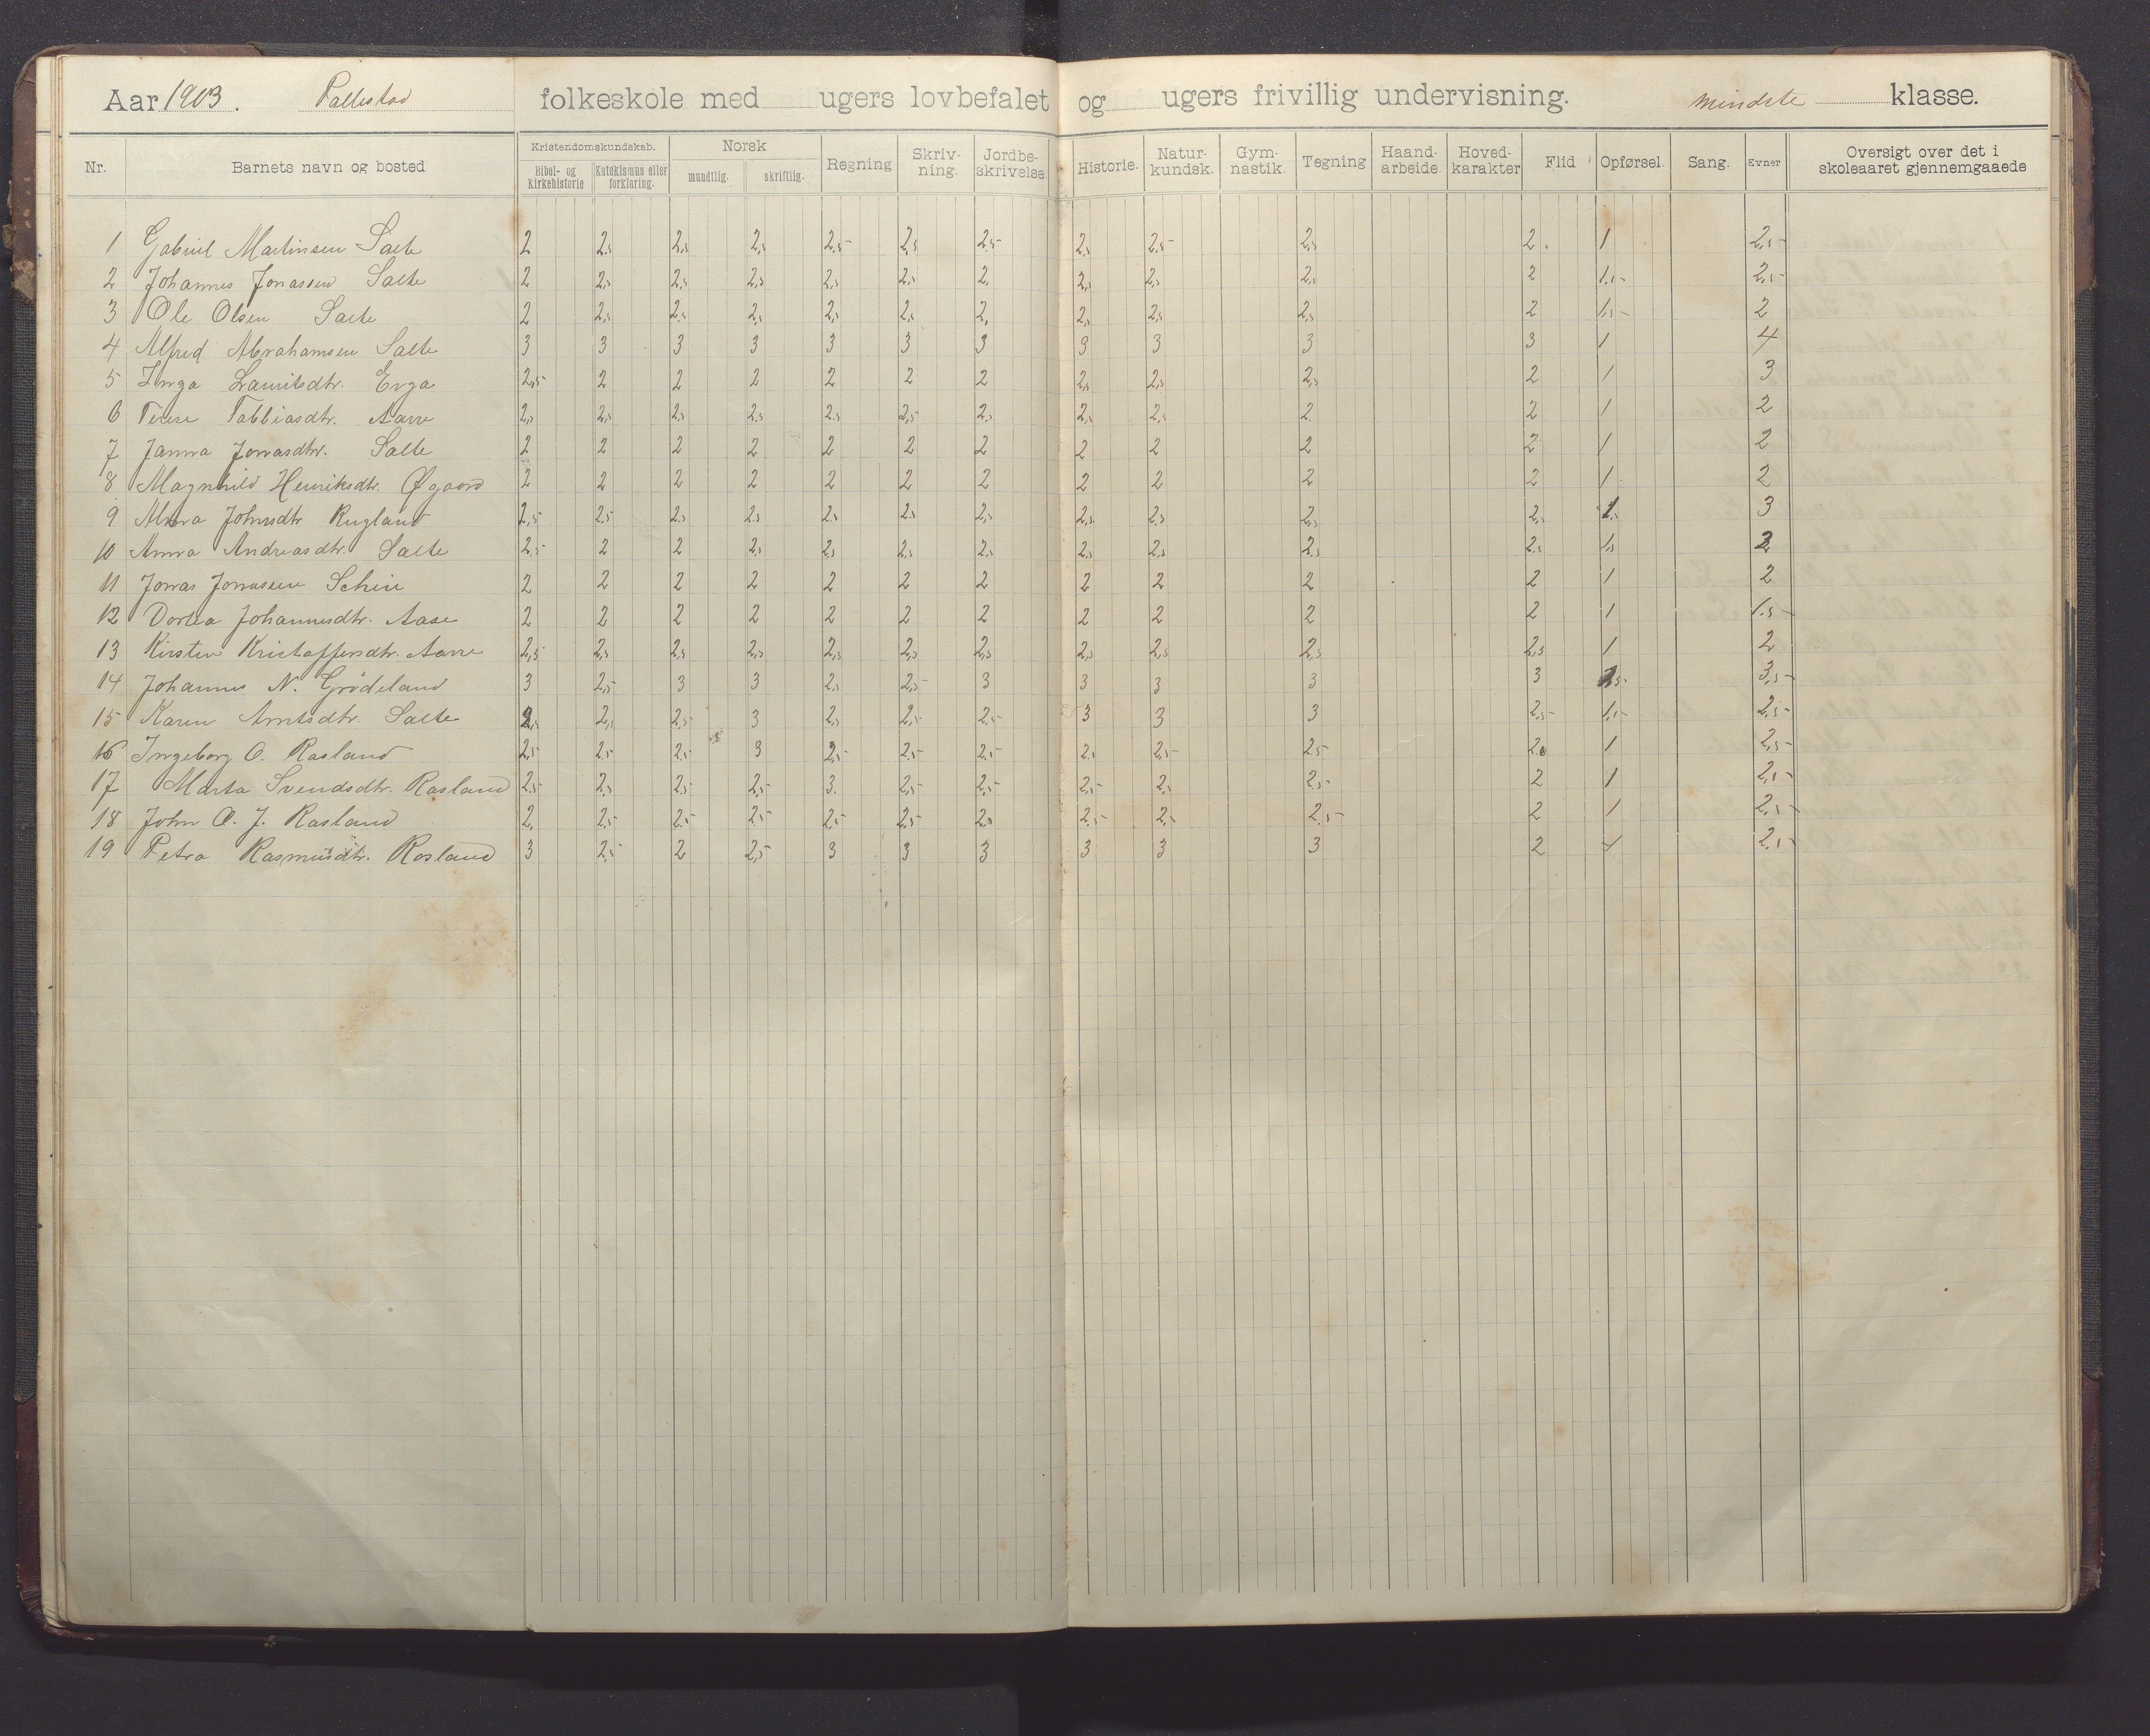 Aar 1903. Pallestad folkeskole med ugers lovbefalet og ugers frivillig undervisning. mindste klasse.
Nr. Barnets navn og bosted Kristendomskundskab. Bibel- og kirkehistorie Katekismus eller forklaring. Norsk mundtlig. skriftlig. Regning Skrivning. Jordbeskrivelse. Historie. Naturkundsk. Gymnastik. Tegning Haandarbeide. Hovedkarakter Flid Opførsel. Sang. Evner Oversigt over det i skoleaaret gjennemgaaede
1 Gabriel Martinsen Salte 2 2,5 2,5 2,5 2,5 2,5 2,5 2,5 2,5 2,5 2. 1 2,5
2 Johannes Jonassen Salte 2 2,5 2,5 2,5 2,5 2,5 2, 2,5 2,5 2,5 2 1,5 2,5
3 Ole Olsen Salte 2 2,5 2,5 2,5 2,5 2,5 2, 2,5 2,5 2,5 2 1,5 2
4 Alfred Abrahamsen Salte 3 3 3 3 3 3 3 3 3 3 3 1 4
5 Inga Lauritsdtr. Erga 2,5 2 2 2 2 2 2 2,5 2,5 2,5 2 1 3
6 Tobbiasdtr. Aarre 2,5 2,5 2,5 2,5 2,5 2,5 2,5 2,5 2,5 2. 2 1 2
7 Janna Jonasdtr. Salte 2 2 2 2 2 2 2 2 2 2 2 1 2
8 Magnhild Henriksdtr. Øgaard 2 2 2 2 2 2 2 2 2 2 2 1 2
9 Johnsdtr Rugland 2,5 2,5 2,5 2,5 2,5 2,5 2,5 2,5 2,5 2,5 2,5 1,5 3
10 Anna Andreasdtr. Salte 2,5 2 2 2,5 2,5 2,5 2,5 2,5 2,5 2,5 2,5 1,5 2
11 Jonas Jonassen 2 2 2 2 2 2 2 2 2 2 2 1 2
12 Dortea Johannesdtr. Aase 2 2 2 2 2 2 2 2 2 2 2 1 1,5
13 Kirsten Kristoffersdtr. Aarre 2,5 2,5 2,5 2,5 2,5 2,5 2,5 2,5 2,5 2,5 2,5 1 2
14 Johannes N. Grødeland 3 2,5 3 3 2,5 2,5 3 3 3 3 3 1,5 3,5
15 Karen Arntsdtr. Salte 2,5 2,5 2,5 3 2,5 2,5 2,5 3 3 3 2,5 1,5 2,5
16 Ingeborg O. Rasland 2,5 2,5 2,5 3 2,5 2,5 2,5 2,5 2,5 2,5 2. 1 2,5
17 Marta Svendsdtr. Rasland 2,5 2,5 2,5 2,5 3. 2,5 2,5 2,5 2,5 2,5 2 1 2,5
18 John O. J. Rasland 2, 2,5 2,5 2,5 2,5 2,5 2,5 2,5 2,5 2,5 2 1 2,5
19 Petra Rasmusdtr. Rosland 3 2,5 2 2,5 3 3 3 3 3 3 2 1 2,5